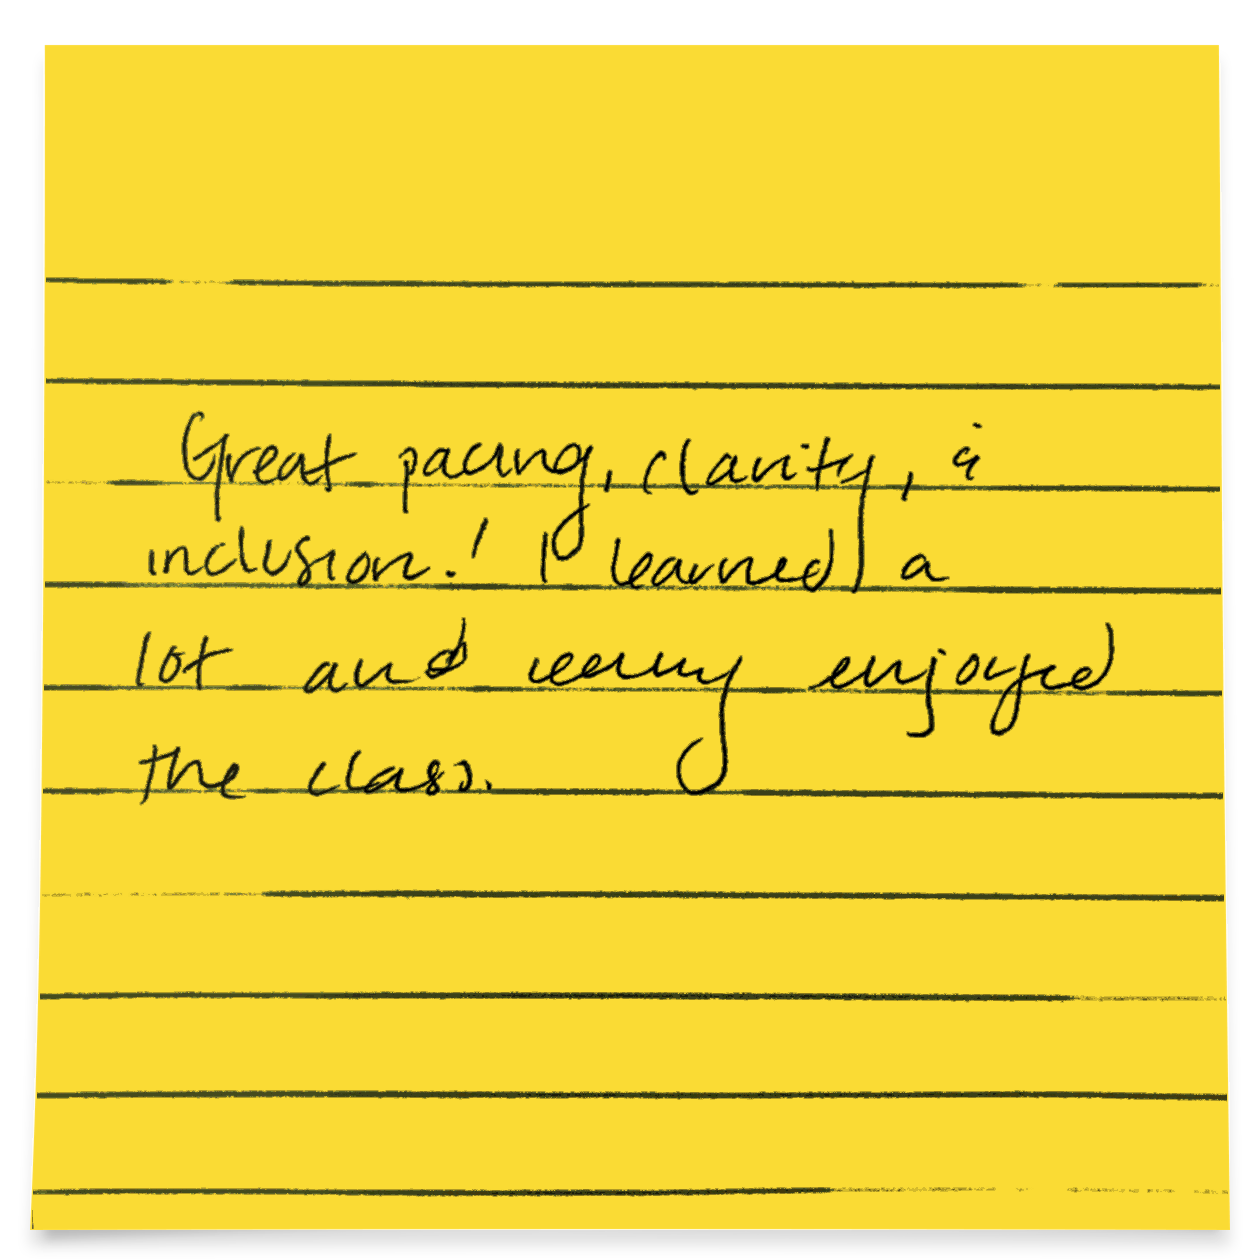 Great pacing, clarity, &
inclusion! I learned a
lot and really enjoyed
the class.